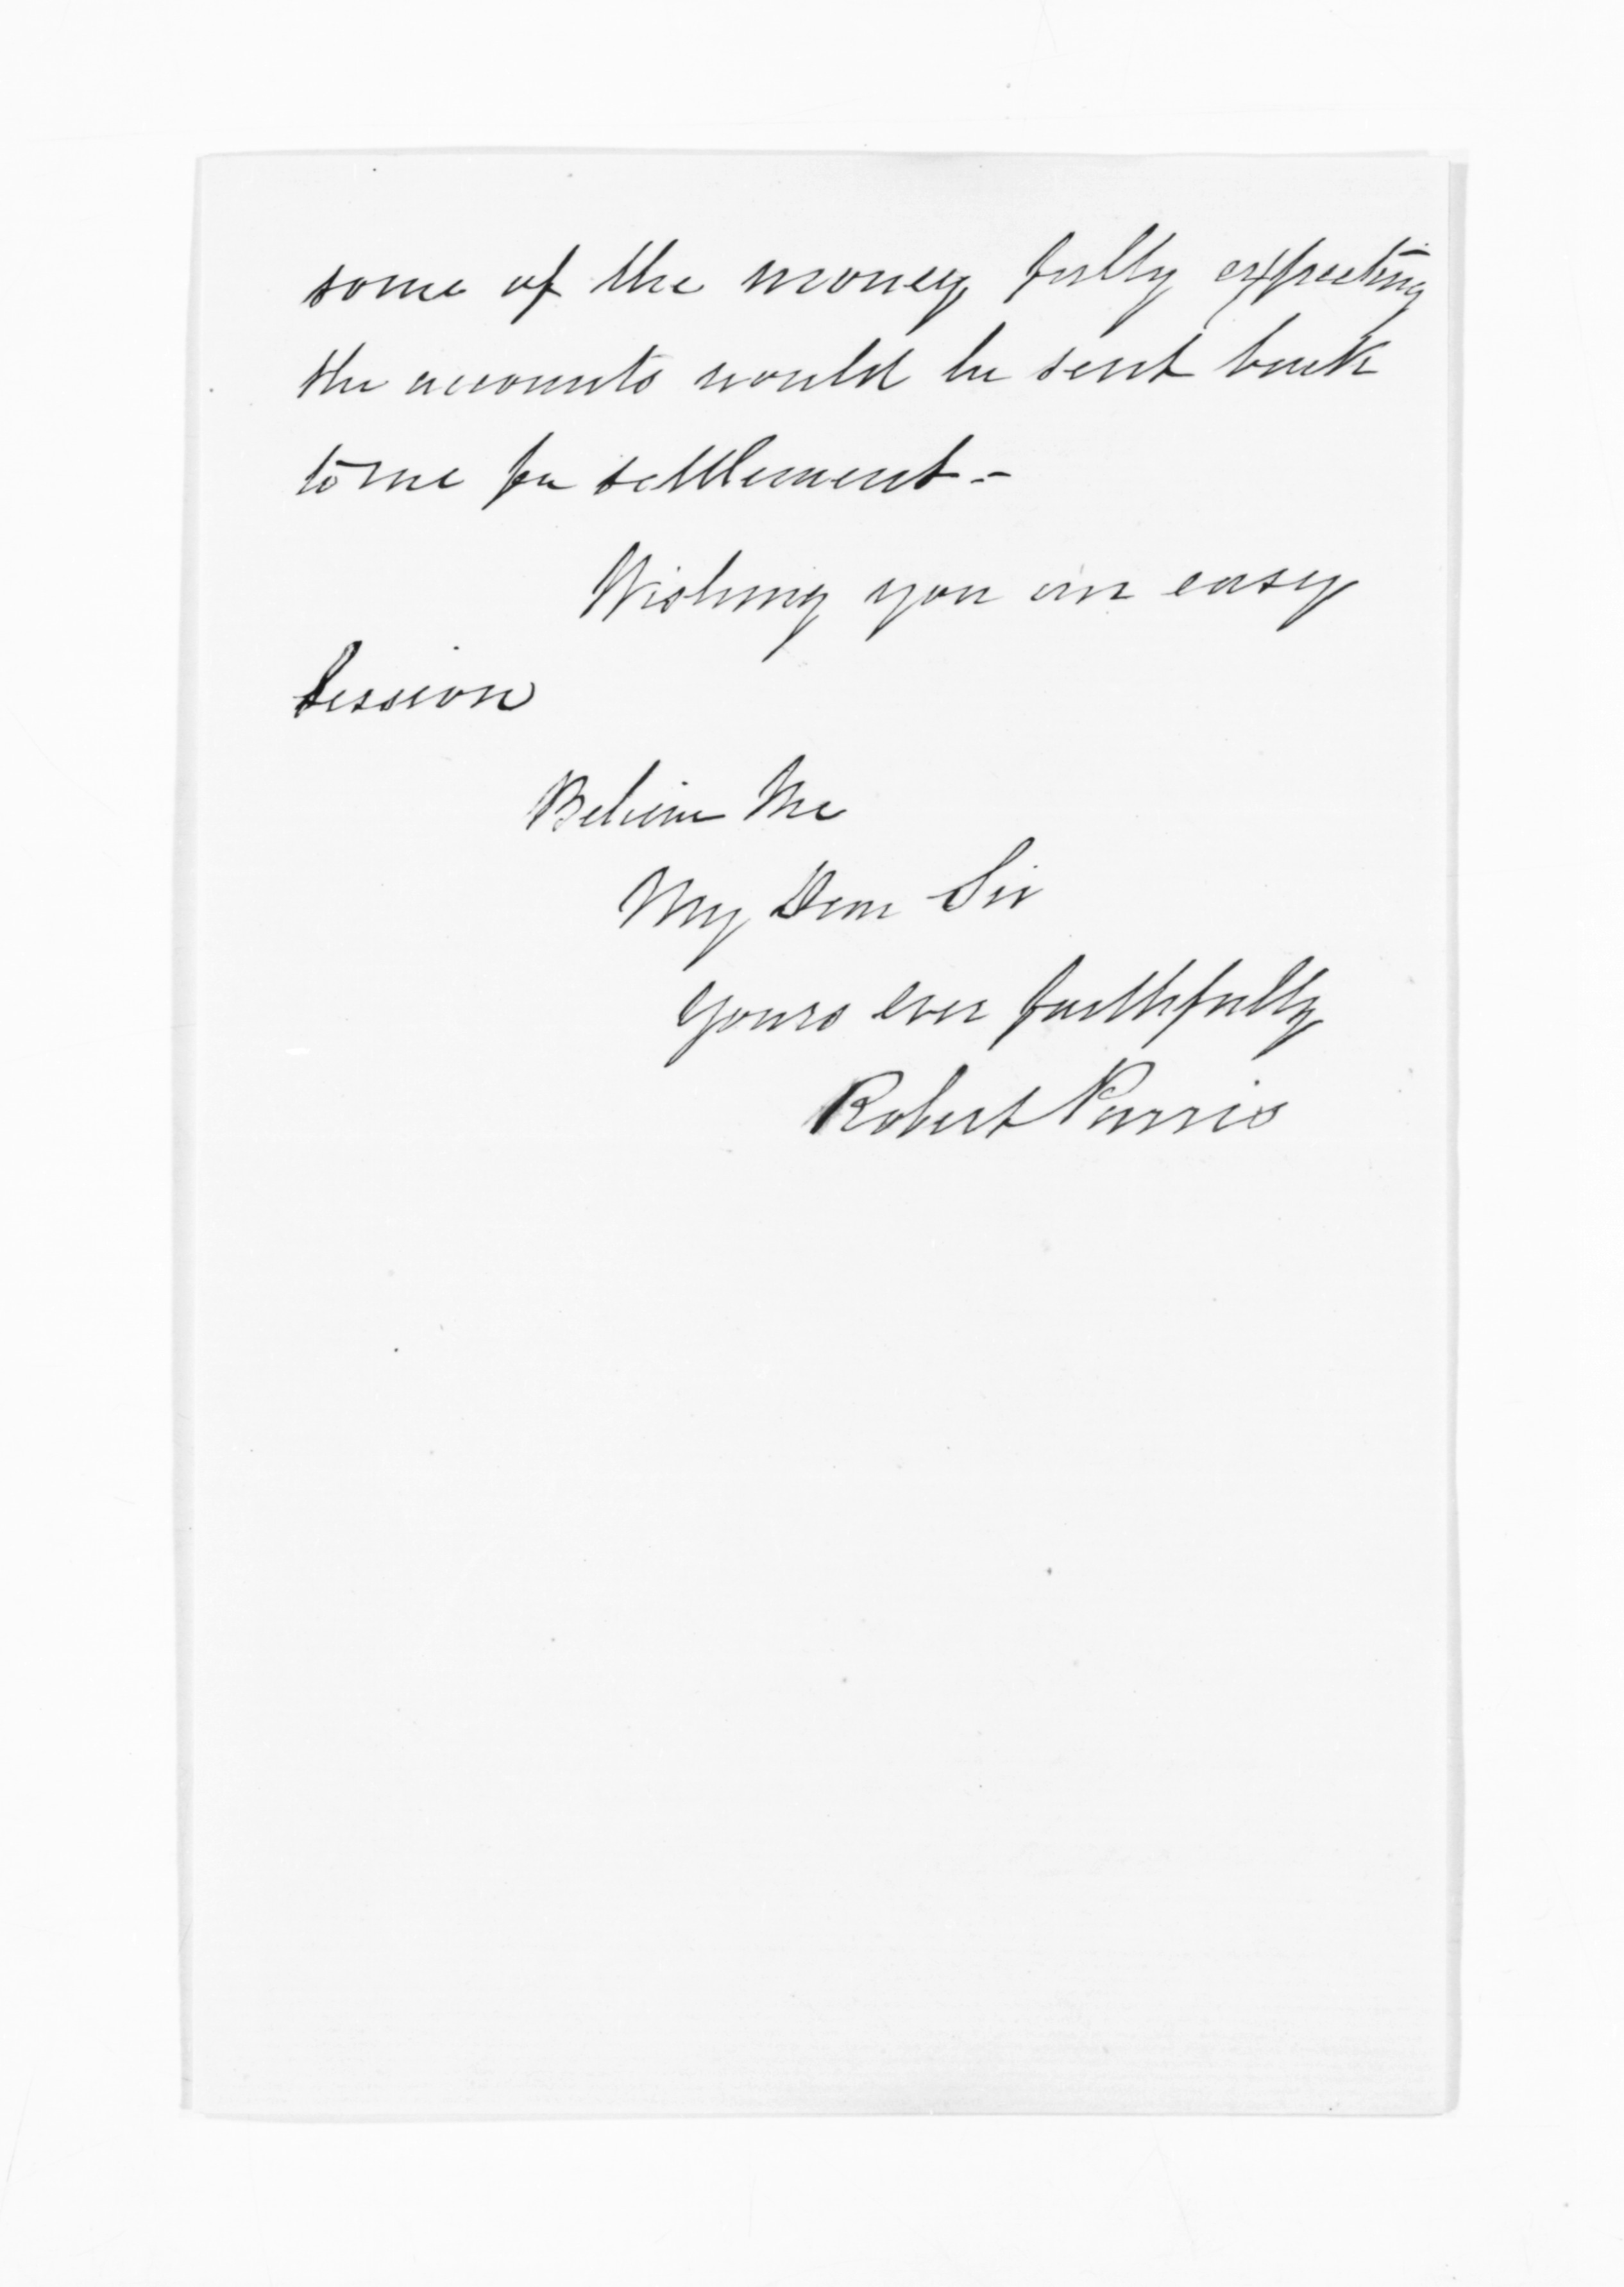 some of the money fully expecting
the accounts would be sent back
to me for settlement.-
Wishing you an easy
Session
Believe Me
My Dear Sir
yours ever faithfully
Robert Parris